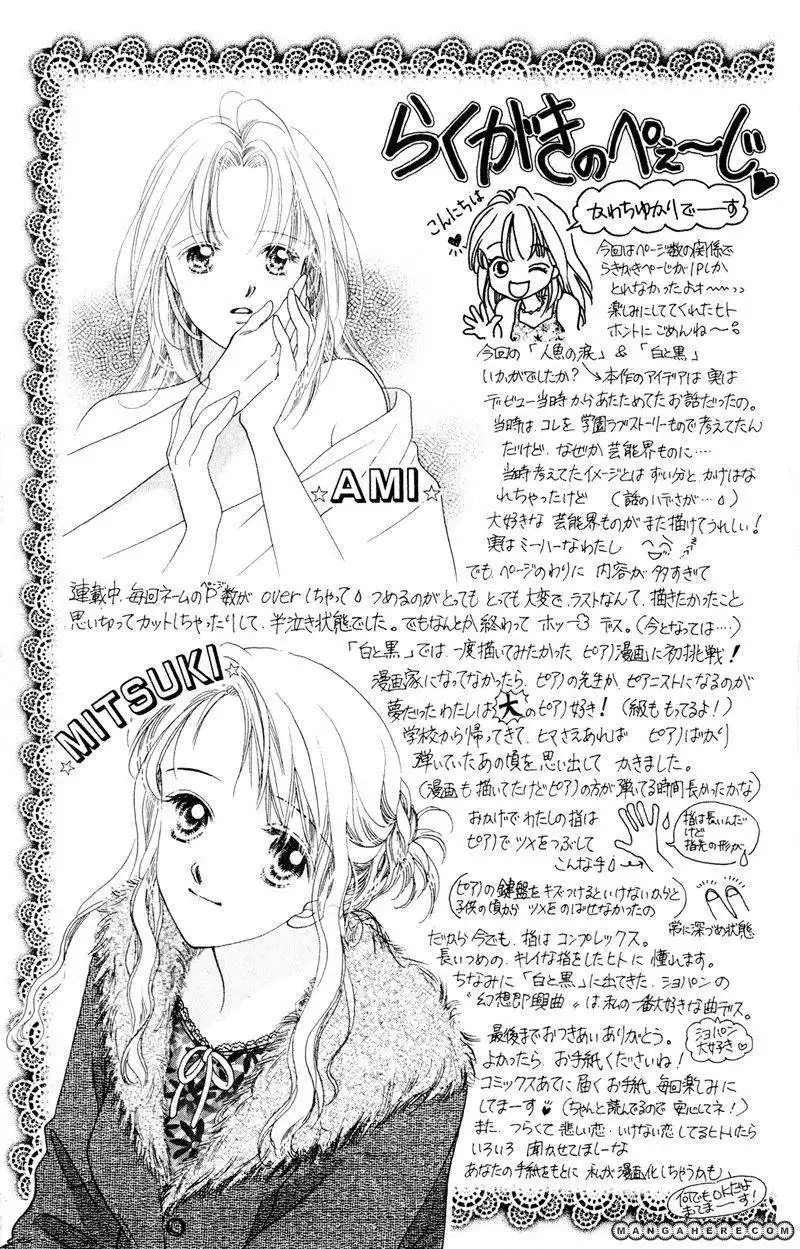 らくがきのぺぇ〜じ♥
こんにちは
かわちゆかりでーーす
今回はページ数の関係で
らきがきページが1Pしか
とれなかったよォ〜〜ッッ
楽しみにしててくれたヒト
ホントにごめんね〜。
今回の「人魚の涙」&「白と黒」
いかがでしたか?→本作のアイデアは実は
デビュー当時からあたためてたお話だったの。
当時は、コレを学園ラブストーリーもので考えてたん
だけど、なぜか芸能界ものに‥‥
当時考えてたイメージとはずい分と、かけはな
れちゃったけど(話のハデさが‥‥)
大好きな芸能界ものがまた描けてうれしい!
実はミーハーなわたし
でも、ページのわりに内容が多すぎて
連載中、毎回ネームのP数がoverしちゃって つめるのがとっても とっても大変で、ラストなんて、描きたかったこと
ページ
思い切ってカットしちゃったりして、半泣き状態でした。でもなんとか終わって ホッ デス。(今となっては‥‥)
☆AMI☆
「白と黒」では一度描いてみたかった ピアノ漫画に初挑戦!
漫画家になってなかったら、ピアノの先生か、ピアニストになるのが
夢だったわたしは大のピアノ好き!(級ももってるよ!)
学校から帰ってきて、ヒマさえあれば ピアノばかり
弾いていたあの頃を思い出して かきました。
(漫画も描いてたけどピアノの方が弾いてる時間長かったかな)
おかげでわたしの指は
ピアノでツメをつぶして
こんな手
指は長いんだ
けど
指先の形が
(ピアノの鍵盤をキズつけるといけないからと
子供の頃からツメをのばせなかったの)
常に深づめ状態
だから今でも、指はコンプレックス。
長いつめの、キレイな指をしたヒトに憧れます。
ちなみに「白と黒」に出てきた、ショパンの
"幻想即興曲"は私の一番大好きな曲デス。
ショパン
大好き
☆MITSUKI☆
最後までおつきあいありがとう。
よかったら、お手紙くださいね!
コミックスあてに届くお手紙、毎回楽しみに
してまーす♥(ちゃんと読んでるので安心してネ!)
また、つらくて悲しい恋・いけない恋してるヒトいたら
いろいろ聞かせてほしーな
あなたの手紙をもとに私が漫画化しちゃうかも、
何でもOKだよ
まってまーーす!
MANGAHERE.COM